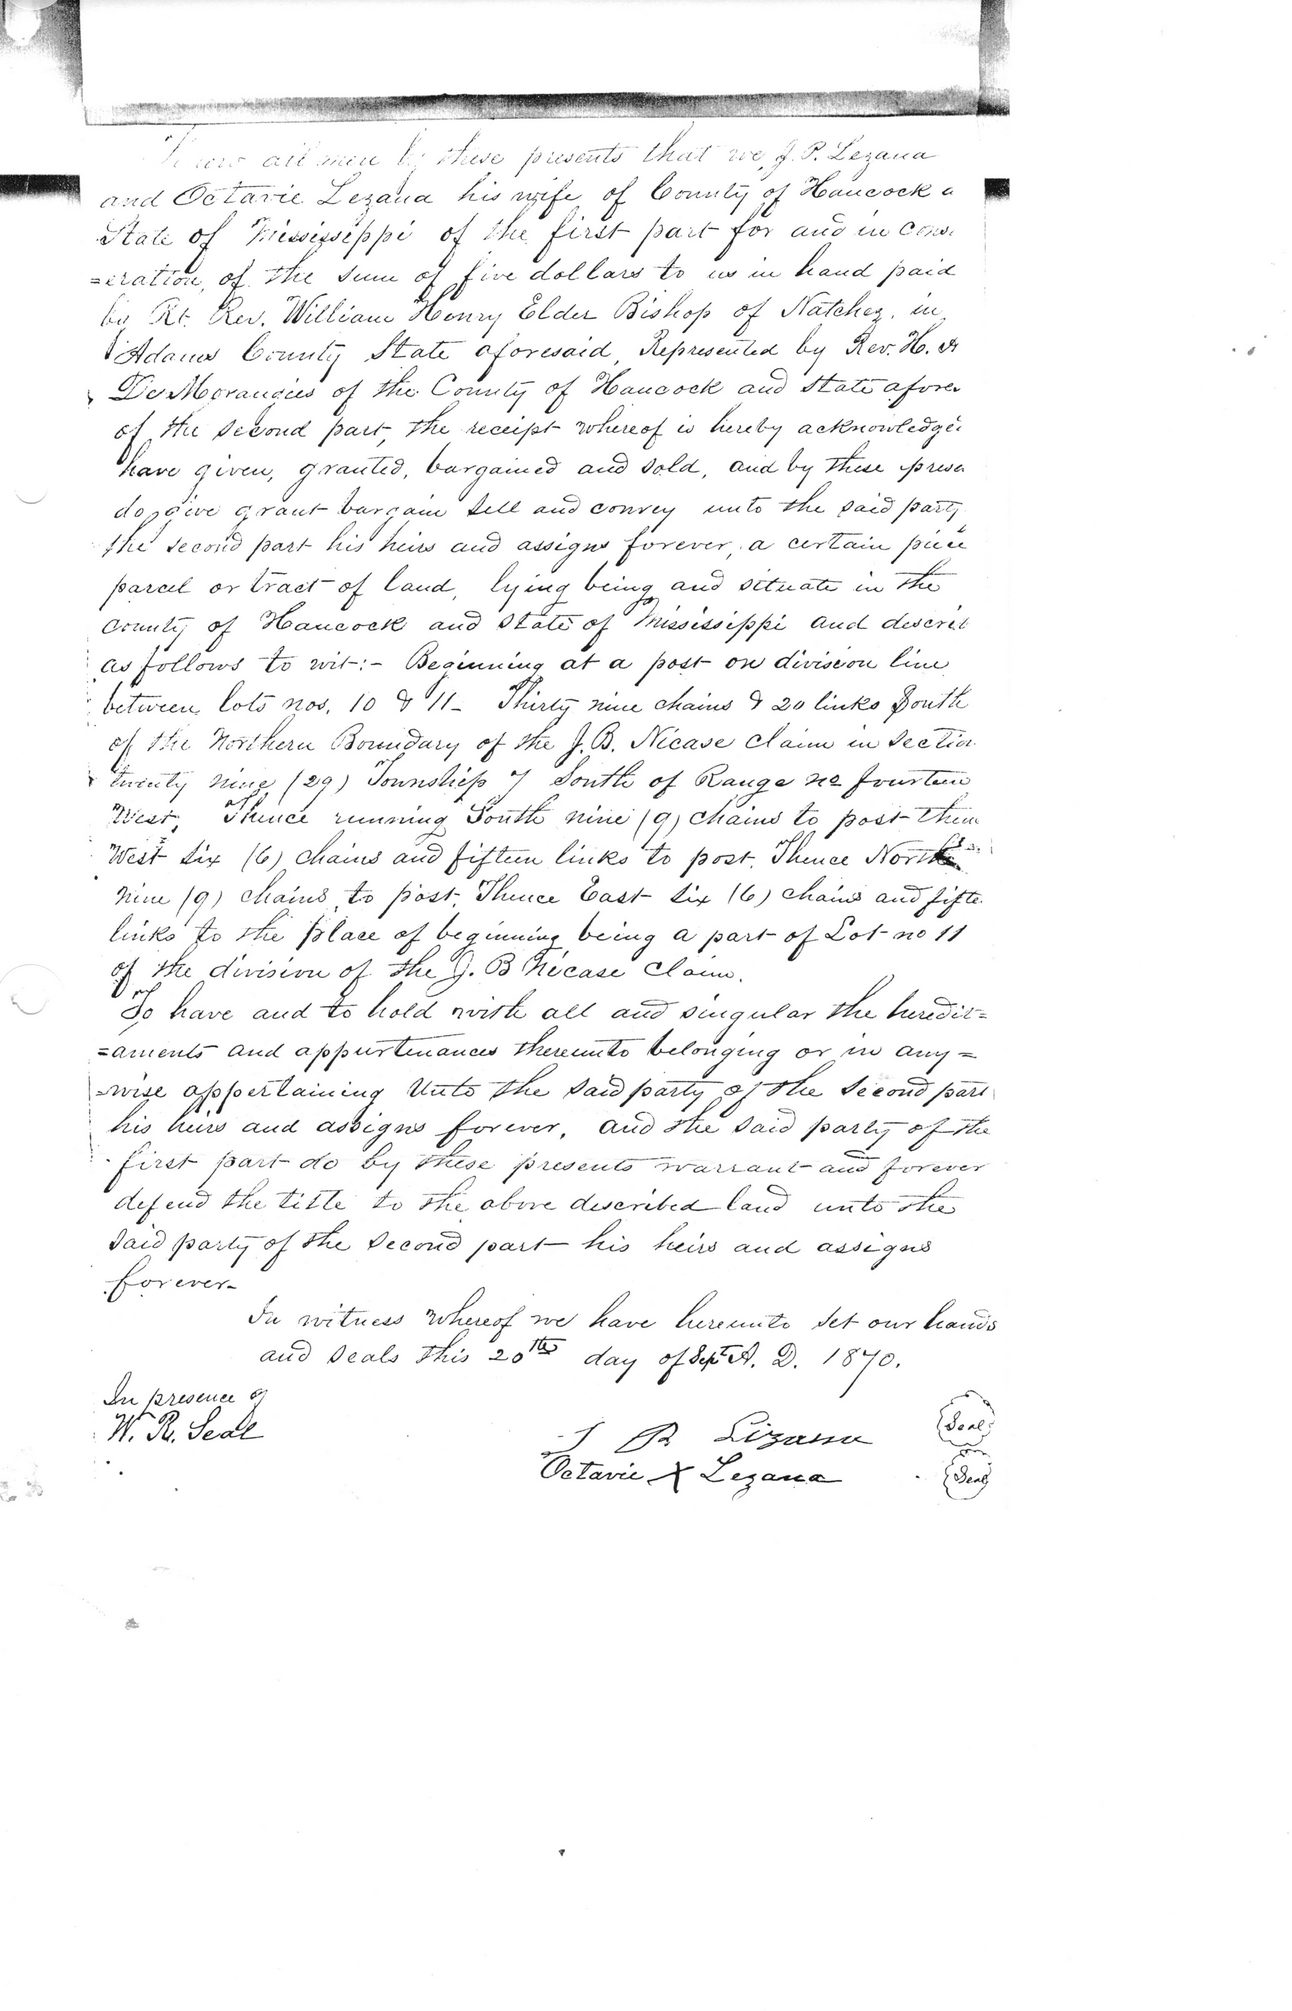 Know all men by these presents that we, J. P. Lezana
and Octavie Lezana his wife of County of Hancock a
State of Mississippi of the first part for and in cons
=eration, of the sum of five dollars to us in hand paid
by Rt. Rev. William Henry Elder Bishop of Natchez, in
Adams County State aforesaid, Represented by Rev. H. 
De Morangies of the County of Hancock and State afore
of the second part, the receipt whereof is hereby acknowledge
have given, granted, bargained and sold, and by these prese
do give grant bargain sell and convey unto the said party
the second part his heirs and assigns forever, a certain piece
parcel or tract of land, lying being and situate in the
County of Hancock and State of Mississippi and describ
as follows to wit:- Beginning at a post on division line
between lots nos. 10 & 11- Thirty nine chains & 20 links South
of the Northern Boundary of the J. B. Nicase claim in section
twenty nine (29) Township 7 South of Range no fourteen
West, Thence running South nine (9) chains to post thence
West six (6) chains and fifteen links to post. Thence North
nine (9) chains, to post, Thence East six (6) chains and fifte
links to the place of beginning being a part of Lot no 11
of the division of the J. B Nicase Claim.
To have and to hold with all and singular the heredit=
=aments and appurtenances thereunto belonging or in any=
=wise appertaining Unto the said party of the second part
his heirs and assigns forever, and the said party of the
first part do by these presents warrant and forever
defend the title to the above described land unto the
said party of the second part his heirs and assigns
forever-
In witness whereof we have hereunto set our hands
and seals this 20th day of Sept A. D. 1870.
In presence of
W. R. Seal
J P Lizana Seal
Octavie X Lezana Seal